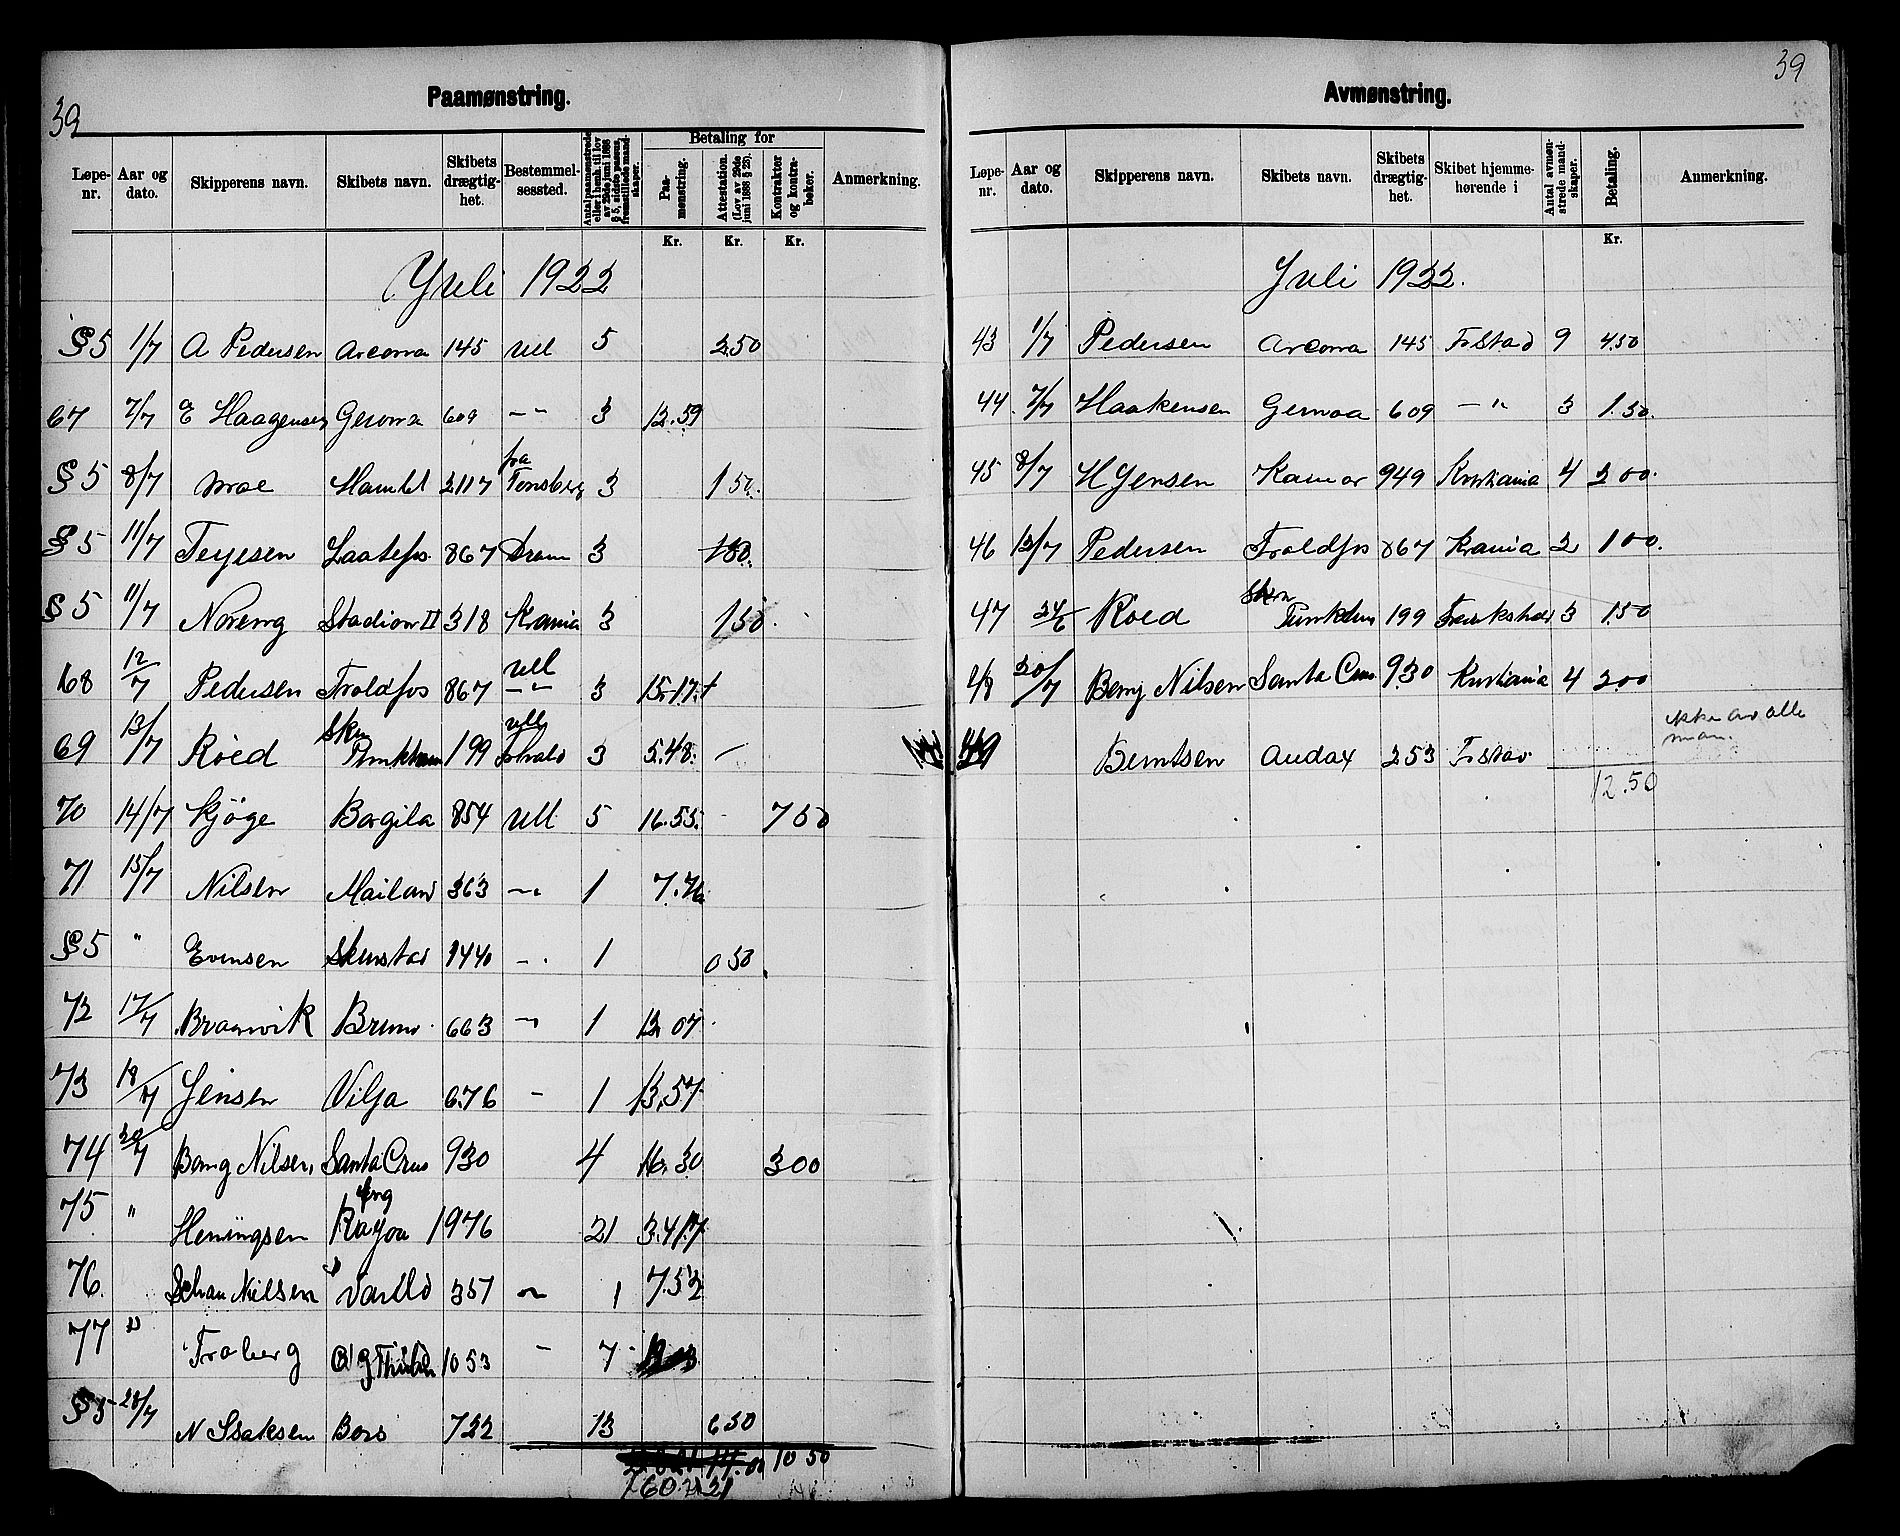 39
Paamønstring.
Løpe-nr. Aar og dato. Skipperens navn. Skibets navn. Skibets drægtig-het. Bestemmel-sessted. Antal paamønstrede eller i henh. til lov av 29de juni 1888 § 5, sidste passus, fremstillede mand-skaper. Betaling for Paa-mønstring. Attestation. (Lov av 29de juni 1888 § 25). Kontrakter og kontra-bøker. Anmerkning.
Kr. Kr. Kr.
Juli 1922
§ 5 1/7 A Pedersen Arcona 145 Utl 5 2.50
67 7/7 E Haagensen 609 -"- 3 12.59
§ 5 8/7 Moe Hamlet 2117 fra Tønsberg 3 1 50.
§ 5 11/7 Laatefos 867 Dram 3
§ 5 11/7 Noreng Stadion II 318 Krania 3 1 50.
68 12/7 Pedersen Troldfos 867 utl -"- 3 15.17.
69 13/7 Røed Skn 199 utl 3 5.48. -
70 14/7 Kjøge Borgila 854 Utl 5 16.55. 7 50
71 15/7 Nilsen Mailand 363 -"- 1 7.76
§ 5 " Evensen 1440 -"- 1 0 50
72 17/7 Bragnvik Bruno 663 -"- 1 12 07
73 18/7 Jensen Vilja 676 - 1 13.57
74 20/7 Berg Nilsen Santa Crus 930 4 16.30 3 00
75 " Heningsen 1976 21
76. Johan Nielsen Vardø 357 -"- 1 7.52
77 " Froberg 1053 - 7
§ 5 28/7 N Isaksen Bors 722 13 6 50
10 50
39
Avmønstring.
Løpe-nr. Aar og dato. Skipperens navn. Skibets navn. Skibets drægtig-het. Skibet hjemme-hørende i Antal avmøn-strede mand-skaper. Betaling. Anmerkning.
Kr.
Juli 1922.
43 1/7 Pedersen Arcona 145 F.stad 9 4.50
44. 7/7 Haakensen 609 -"- 3 1.50.
45 8/7 H Jensen 949 Kristiania 4 2 00.
46 12/7 Pedersen Troldfos 867 Krania 2 1 00.
47 24/6 Røed Skn 199 3 1.50
48 20/7 Berg Nilsen Santa Crus 930 Kristiania 4 2.00
49 Berntsen Audax 253 F.stad ikke av alle man.
12.50